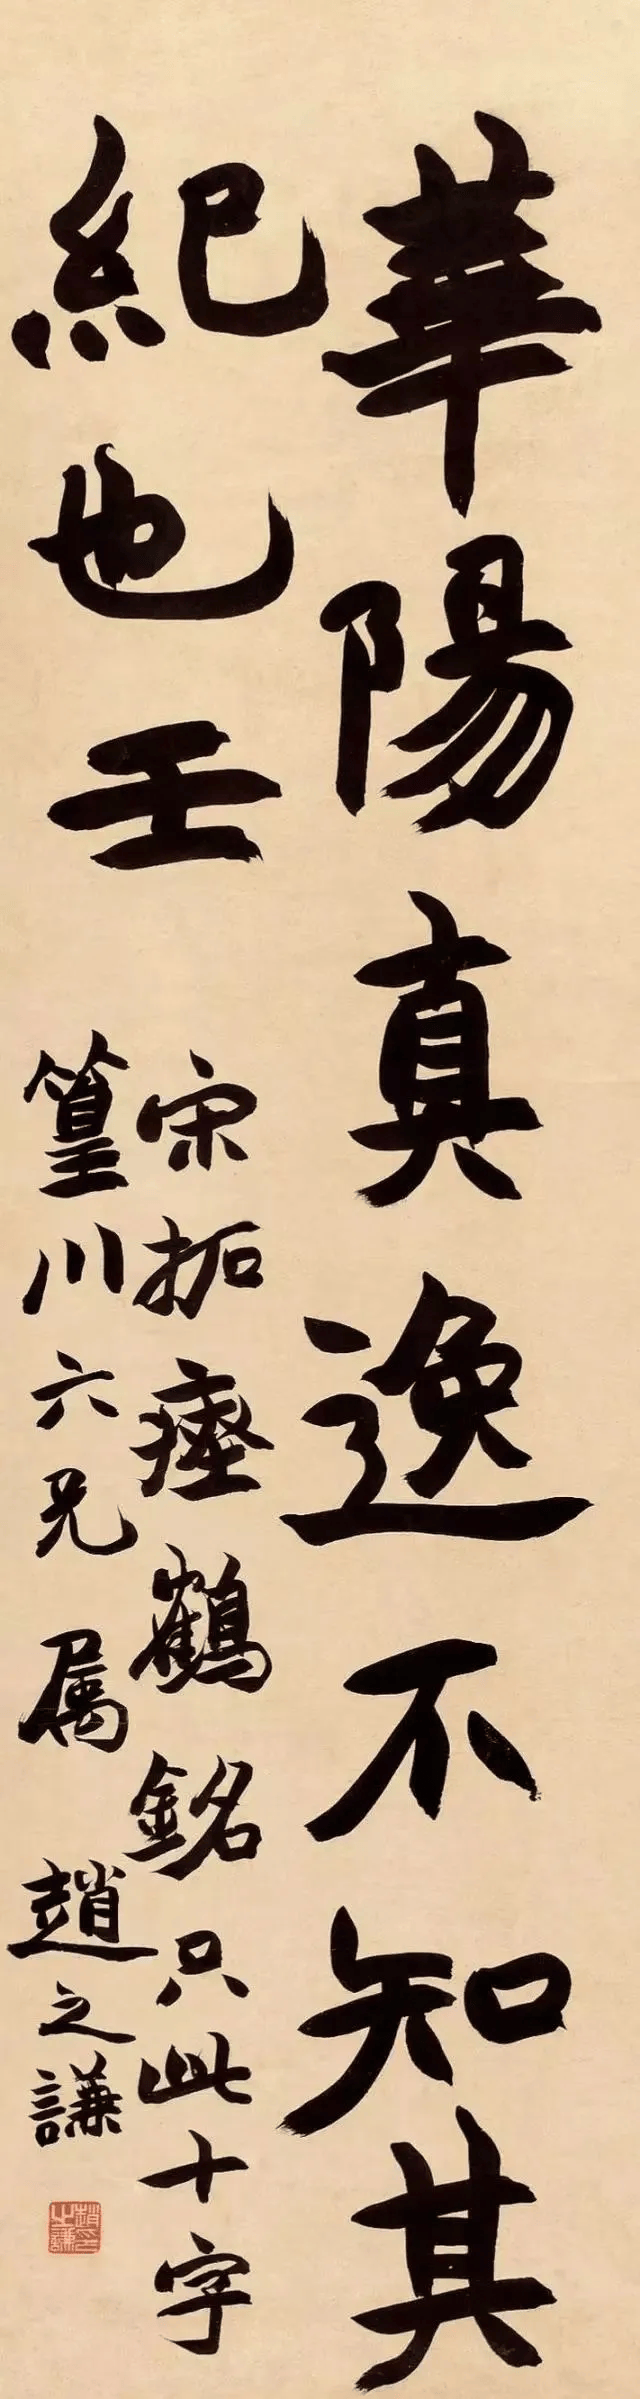 華陽真逸不知其
紀也壬
宋拓瘞鶴銘只此十字
篁川六兄属 趙之謙
趙之謙印